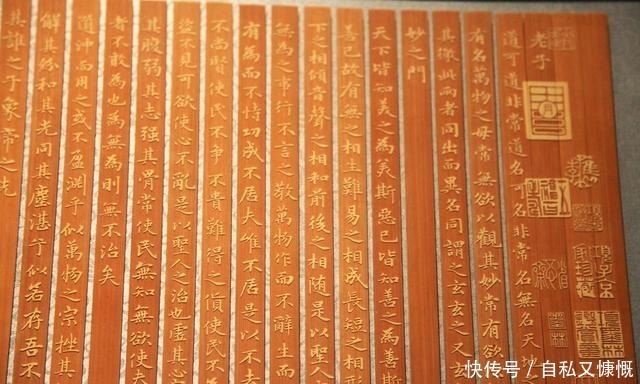 老子
道可道非常道名可名非常名無名天地
有名萬物之母常無欲以觀其妙常有欲
其徼此兩者同出而異名同謂之玄玄之又玄
妙之門
天下皆知美之為美斯惡已皆知善之為善斯
善已故有無之相生難易之相成長短之相形
下之相傾音聲之相和前後之相隨是以聖人
無為之事行不言之教萬物作而不辭生而
有為而不恃功成不居夫惟不居是以不去
不尚賢使民不爭不貴難得之貨使民不
盜不見可欲使心不亂是以聖人之治也虛其
其腹弱其志強其骨常使民無知無欲使
者不敢為也為無為則無不治矣
道沖而用之或不盈淵乎似萬物之宗挫其
解其紛和其光同其塵湛乎似若存吾不
其誰之子象帝之先
快传号/自私又慷慨